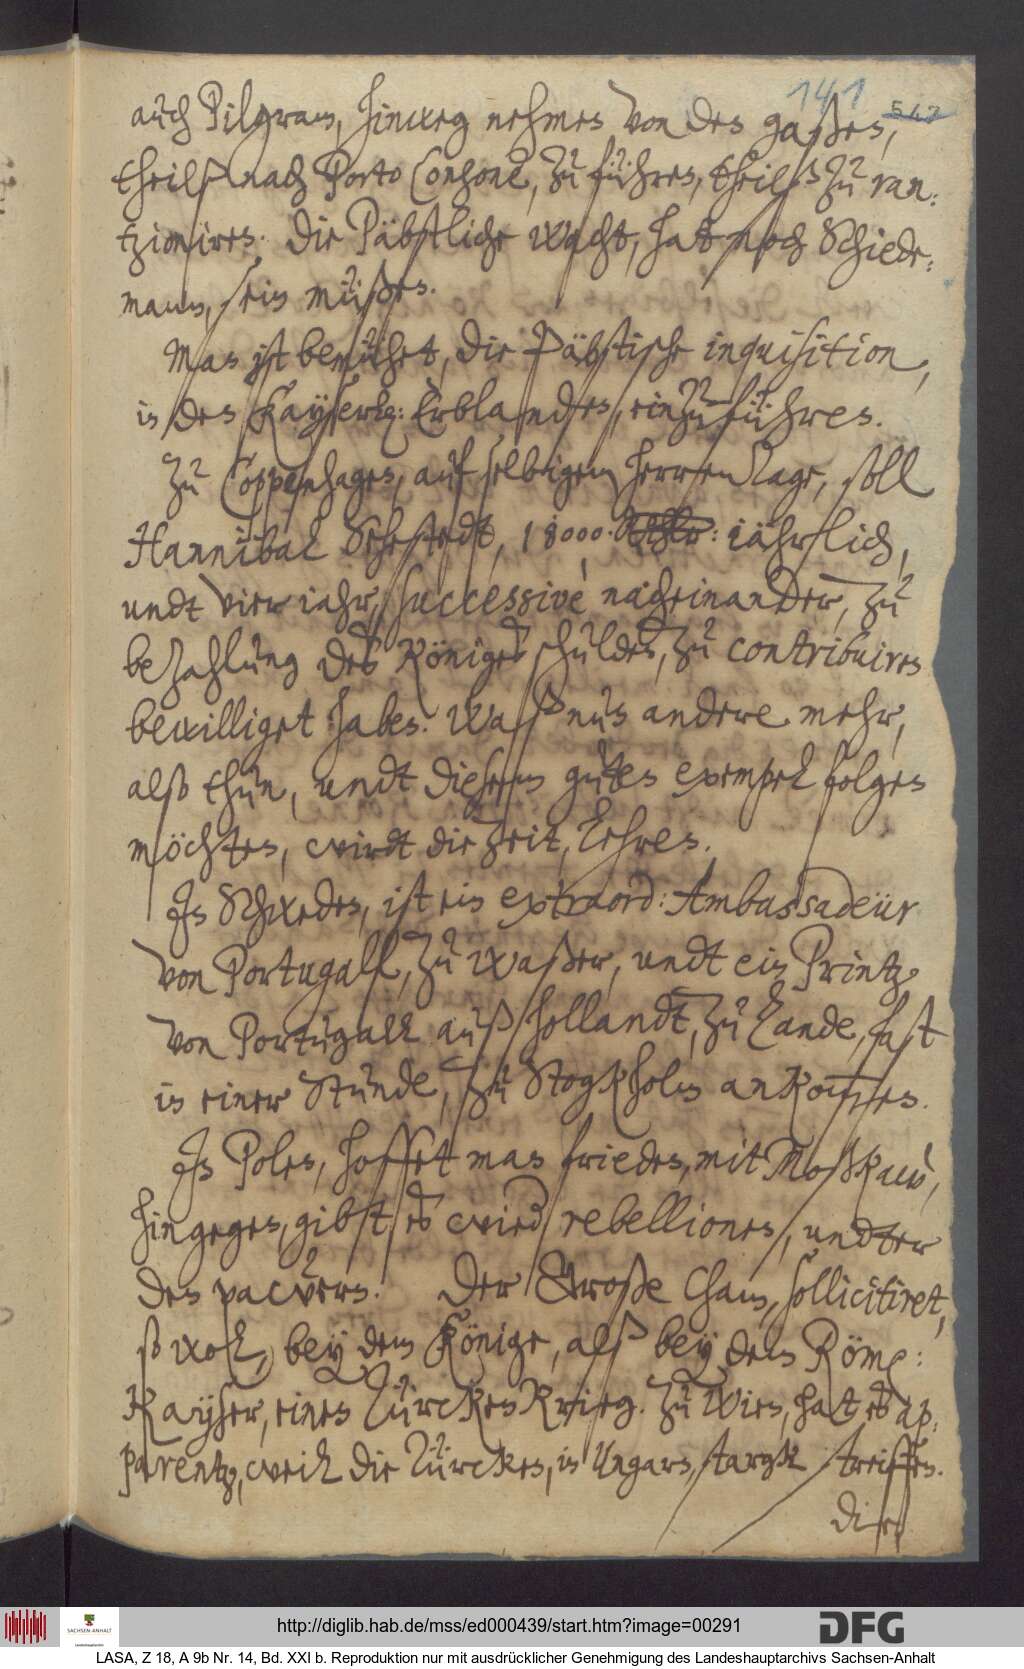 141 547
auch Pilgram, hinweg nehmen von den gaßen,
theilß nach Porto Conhone, zu führen, theilß zu ran:
tzioniren. Die Päbstliche wacht, hat noch Schiede:
mann, sein müßen.
Man ist bemühet, die Päbstische inquisition,
in den Kayserl: Erblanden, einzuführen.
Zu Coppenhagen, auf selbigem herrenTage, soll
Hannibal Sehestedt, 18000 Rthlr: iährlich,
undt vier iahr, successivè nacheinander, zu
bezahlung des Königes schulden, zu contribuiren
bewilliget haben. Waß nun andere mehr,
alß thun, undt diesem guten exempel folgen
möchten, wirdt die Zeit, lehren.
In Schweden, ist ein extraord: Ambassadeur
von Portugall, zu waßer, undt ein Printz
von Portugall auß hollandt, zu Lande, fast
in einer Stunde, zu Stogkholm ankommen.
In Polen, hoffet man frieden, mit Moßkaw,
hingegen, gibst es wied rebellionen, undter
den pacvern. Der Große Cham, solliciret,
so wol, bey dem Könige, alß bey dem Röme:
Kayser, einen Türcken Krieg. Zu Wien, hat es ap:
parentz, weil die Türcken, in Ungarn, stargk streiffen.
Die
http://diglib.hab.de/mss/ed000439/start.htm?image=00291
SACHSEN-ANHALT
DFG
LASA, Z 18, A 9b Nr. 14, Bd. XXI b. Reproduktion nur mit ausdrücklicher Genehmigung des Landeshauptarchivs Sachsen-Anhalt